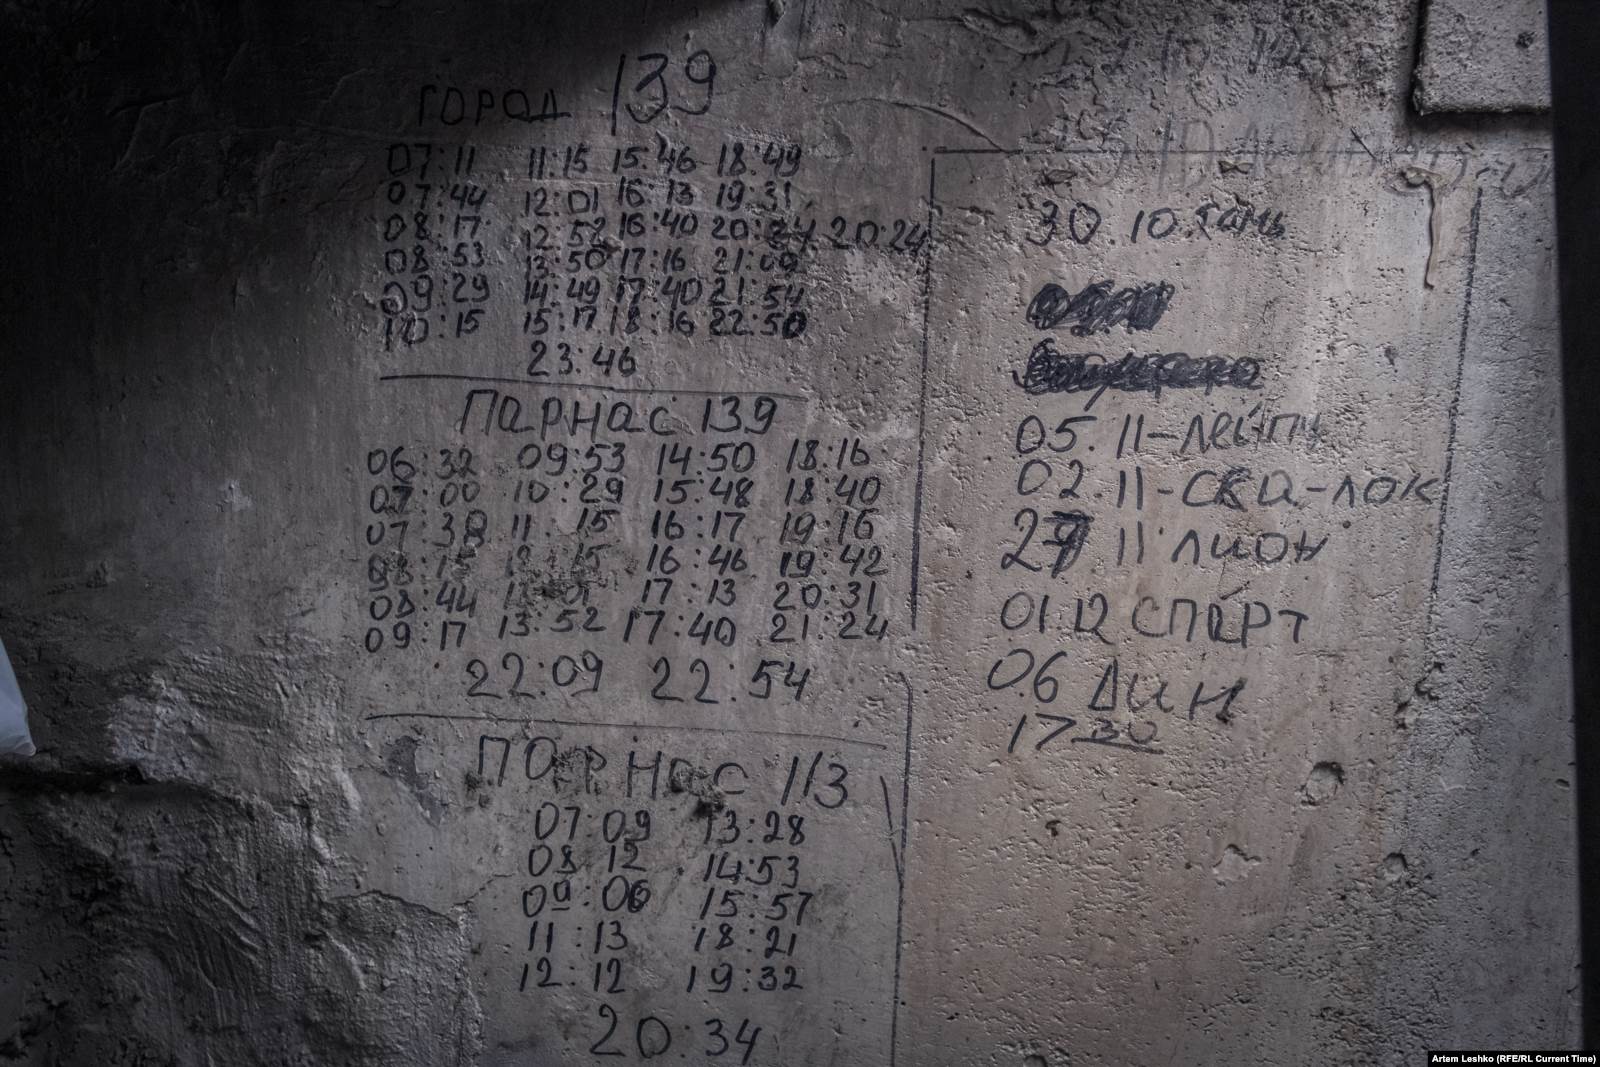 ГОРОД 139
07:11 11:15 15:46 18:49
07:44 12:01 16:13 19:31
08:17 12:52 16:40 20:24 20:24
08:53 13:50 17:16 21:09
09:29 14:49 17:40 21:54
10:15 15:17 18:16 22:50
23:46
ПАРНАС 139
06:32 09:53 14:50 18:16
07:00 10:29 15:48 18:40
07:38 11:15 16:17 19:16
08:15 16:46 19:42
08:44 17:13 20:31
09:17 13:52 17:40 21:24
22:09 22:54
ПАРНАС 113
07:09 13:28
08 12 14:53
09:06 15:57
11:13 18:21
12:12 19:32
20:34
30.10.
05.11-ЛЕЙПЦ
02.11-СКА-ЛОК
11 ЛИОН
01.12 СПАРТ
06 ДИН
17 30
Artem Leshko (RFE/RL Current Time)